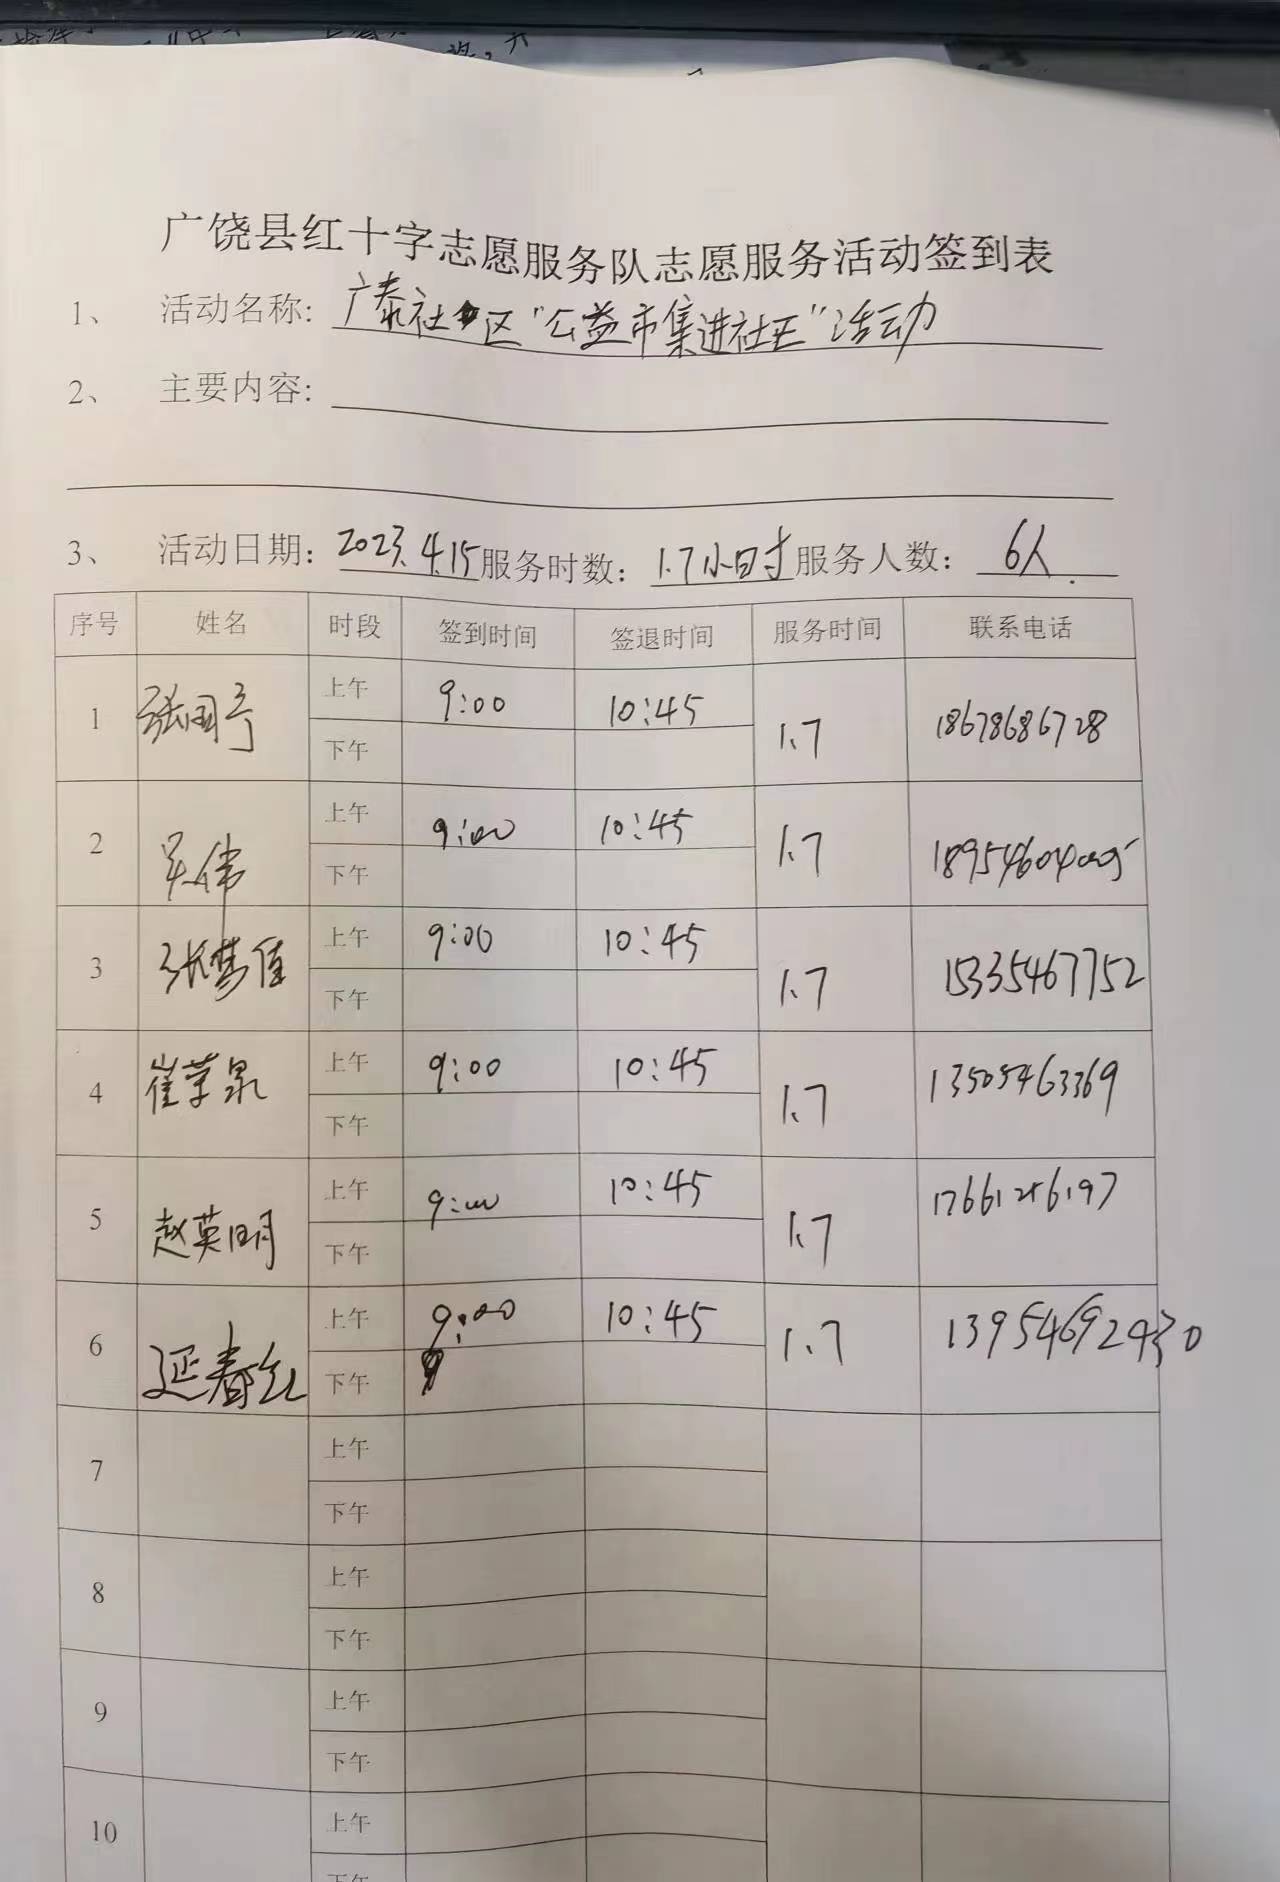 广饶县红十字志愿服务队志愿服务活动签到表
1、 活动名称: 广泰社区"公益市集进社区"活动
2、 主要内容:
3、 活动日期: 2023.4.15 服务时数: 1.7小时 服务人数: 6人.
序号 姓名 时段 签到时间 签退时间 服务时间 联系电话
1 上午 9:00 10:45 1.7 18678686728
下午
2 吴伟 上午 9:00 10:45 1.7
下午
3 上午 9:00 10:45 1.7 15335467752
下午
4 上午 9:00 10:45 1.7 13505463369
下午
5 赵英明 上午 9:00 10:45 1.7
下午
6 延春红 上午 9:00 10:45 1.7 13954692430
下午
7 上午
下午
8 上午
下午
9 上午
下午
10 上午
下午